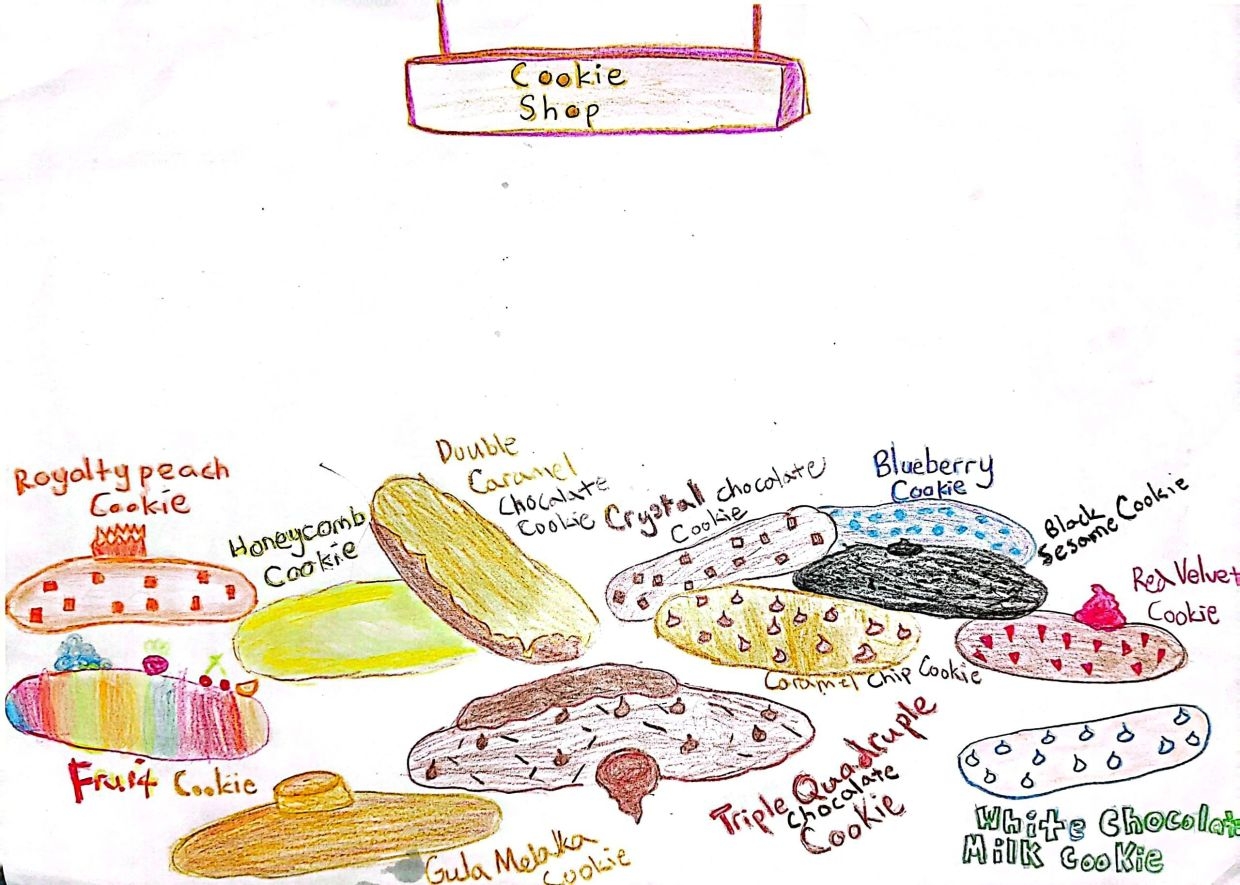 Cookie
Shop
Royalty peach
Cookie
Honeycomb
Cookie
Double
Caramel
Chocolate
Cookie
Crystal chocolate
Cookie
Blueberry
Cookie
Black
Sesame Cookie
Red Velvet
Cookie
Caramel Chip Cookie
Fruit Cookie
Gula Melaka
Cookie
Triple Quadruple
Chocolate
Cookie
White Chocolate
Milk Cookie